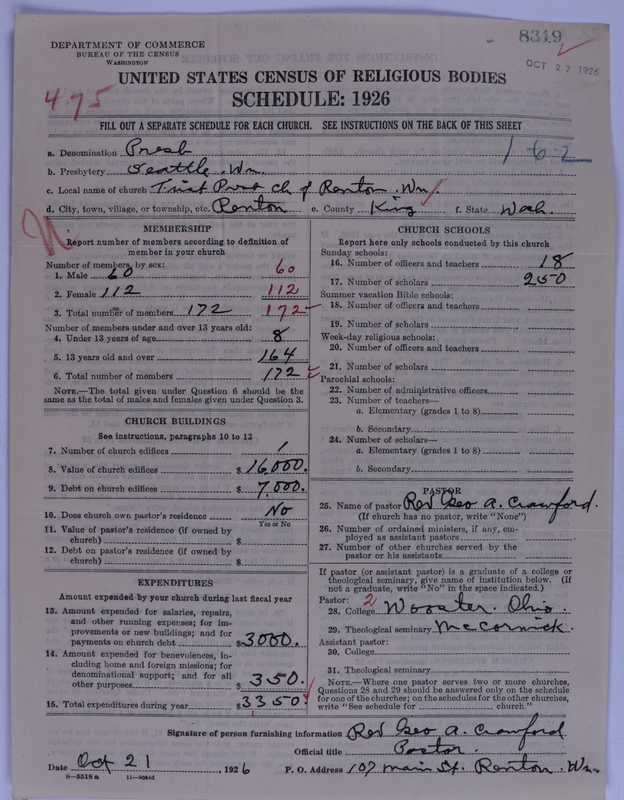 8319
OCT 27 1926
DEPARTMENT OF COMMERCE
BUREAU OF THE CENSUS
WASHINGTON
UNITED STATES CENSUS OF RELIGIOUS BODIES
475
SCHEDULE: 1926
FILL OUT A SEPARATE SCHEDULE FOR EACH CHURCH. SEE INSTRUCTIONS ON THE BACK OF THIS SHEET
a. Denomination Presb
1-62
b. Presbytery Seattle. Wn.
c. Local name of church First Pres Ch of Renton Wn.
d. City, town, village, or township, etc. Renton e. County King f. State Wash.
MEMBERSHIP
Report number of members according to definition of
member in your church
Number of members by sex:
1. Male 60 60
2. Female 112 112
3. Total number of members. 172 172
Number of members under and over 13 years old:
4. Under 13 years of age 8
5. 13 years old and over 164
6. Total number of members 172
NOTE.—The total given under Question 6 should be the
same as the total of males and females given under Question 3.
CHURCH BUILDINGS
See instructions, paragraphs 10 to 12
7. Number of church edifices 1
8. Value of church edifices $16,000.
9. Debt on church edifices $7,000.
10. Does church own pastor's residence No
Yes or No
11. Value of pastor's residence (if owned by
church) $
12. Debt on pastor's residence (if owned by
church) $
EXPENDITURES
Amount expended by your church during last fiscal year
13. Amount expended for salaries, repairs,
and other running expenses; for im-
provements or new buildings; and for
payments on church debt $3000.
14. Amount expended for benevolences, in-
cluding home and foreign missions; for
denominational support; and for all
other purposes $350.
15. Total expenditures during year $3350.
CHURCH SCHOOLS
Report here only schools conducted by this church
Sunday schools:
16. Number of officers and teachers 18
17. Number of scholars 250
Summer vacation Bible schools:
18. Number of officers and teachers
19. Number of scholars
Week-day religious schools:
20. Number of officers and teachers
21. Number of scholars
Parochial schools:
22. Number of administrative officers
23. Number of teachers—
a. Elementary (grades 1 to 8)
b. Secondary
24. Number of scholars—
a. Elementary (grades 1 to 8)
b. Secondary
PASTOR
25. Name of pastor Rev Geo A. Crawford.
(If church has no pastor, write "None")
26. Number of ordained ministers, if any, em-
ployed as assistant pastors
27. Number of other churches served by the
pastor or his assistants
If pastor (or assistant pastor) is a graduate of a college or
theological seminary, give name of institution below. (If
not a graduate, write "No" in the space indicated.)
Pastor: 2
28. College Wooster. Ohio.
29. Theological seminary McCormick.
Assistant pastor:
30. College
31. Theological seminary
NOTE.—Where one pastor serves two or more churches,
Questions 28 and 29 should be answered only on the schedule
for one of the churches; on the schedules for the other churches,
write "See schedule for church."
Signature of person furnishing information Rev Geo A. Crawford
Official title Pastor.
Date Oct 21, 1926 P. O. Address 107 Main St. Renton. Wn.
8—5318 a